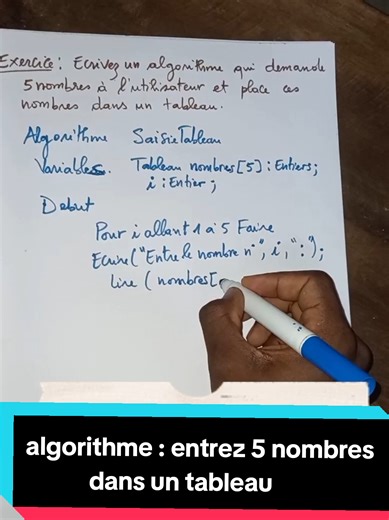 Exercice : Ecrivez un algorithme qui demande
5 nombres à l'utilisateur et place ces
nombres dans un tableau.
Algorithme SaisieTableau
Variables. Tableau nombres[5] : Entiers;
i : Entier ;
Debut
Pour i allant 1 à 5 Faire
Ecrire("Entre le nombre n°", i, " : ");
lire (nombres[
algorithme : entrez 5 nombres
dans un tableau